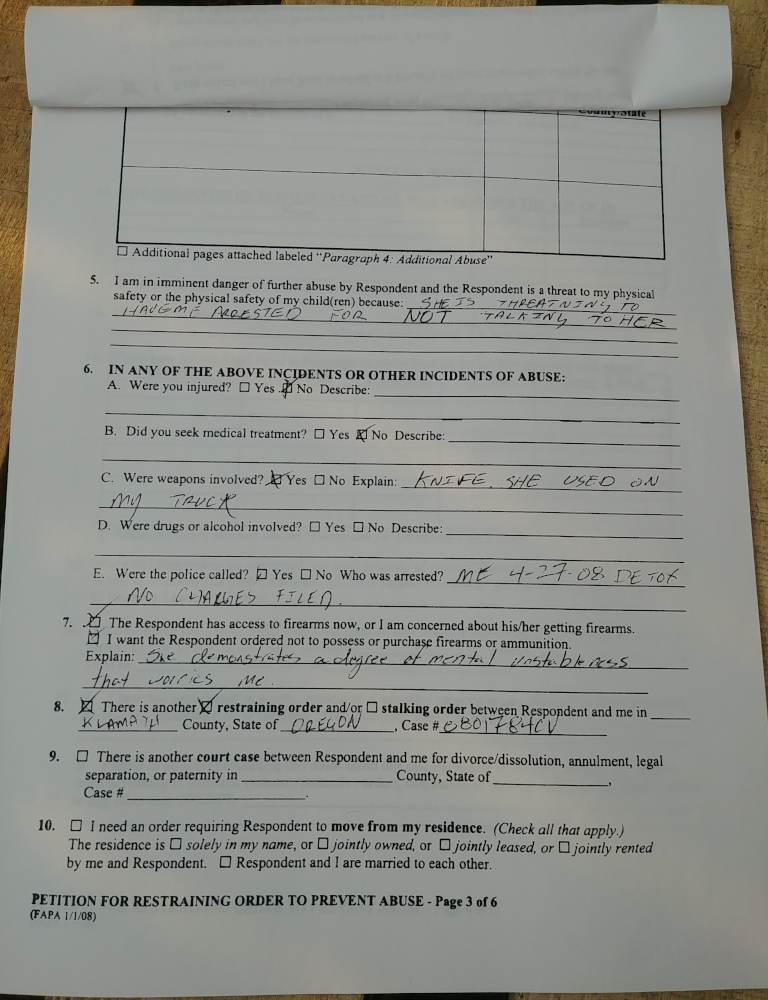 County/State
☐ Additional pages attached labeled "Paragraph 4: Additional Abuse"
5. I am in imminent danger of further abuse by Respondent and the Respondent is a threat to my physical
safety or the physical safety of my child(ren) because: SHE IS THREATNING TO
HAVEME ARRESTED FOR NOT TALKING TO HER
6. IN ANY OF THE ABOVE INCIDENTS OR OTHER INCIDENTS OF ABUSE:
A. Were you injured? ☐ Yes ☒ No Describe:
B. Did you seek medical treatment? ☐ Yes ☒ No Describe:
C. Were weapons involved? ☒ Yes ☐ No Explain: KNIFE. SHE USED ON
MY TRUCK
D. Were drugs or alcohol involved? ☐ Yes ☐ No Describe:
E. Were the police called? ☒ Yes ☐ No Who was arrested? ME 4-27-08 DETOX
NO CHARGES FILED.
7. ☒ The Respondent has access to firearms now, or I am concerned about his/her getting firearms.
☒ I want the Respondent ordered not to possess or purchase firearms or ammunition.
Explain: She demonstrates a degree of mental unstableness
that worries me.
8. ☒ There is another ☒ restraining order and/or ☐ stalking order between Respondent and me in
KLAMATH County, State of OREGON, Case # 0801784CV
9. ☐ There is another court case between Respondent and me for divorce/dissolution, annulment, legal
separation, or paternity in County, State of ,
Case # .
10. ☐ I need an order requiring Respondent to move from my residence. (Check all that apply.)
The residence is ☐ solely in my name, or ☐ jointly owned, or ☐ jointly leased, or ☐ jointly rented
by me and Respondent. ☐ Respondent and I are married to each other.
PETITION FOR RESTRAINING ORDER TO PREVENT ABUSE - Page 3 of 6
(FAPA 1/1/08)